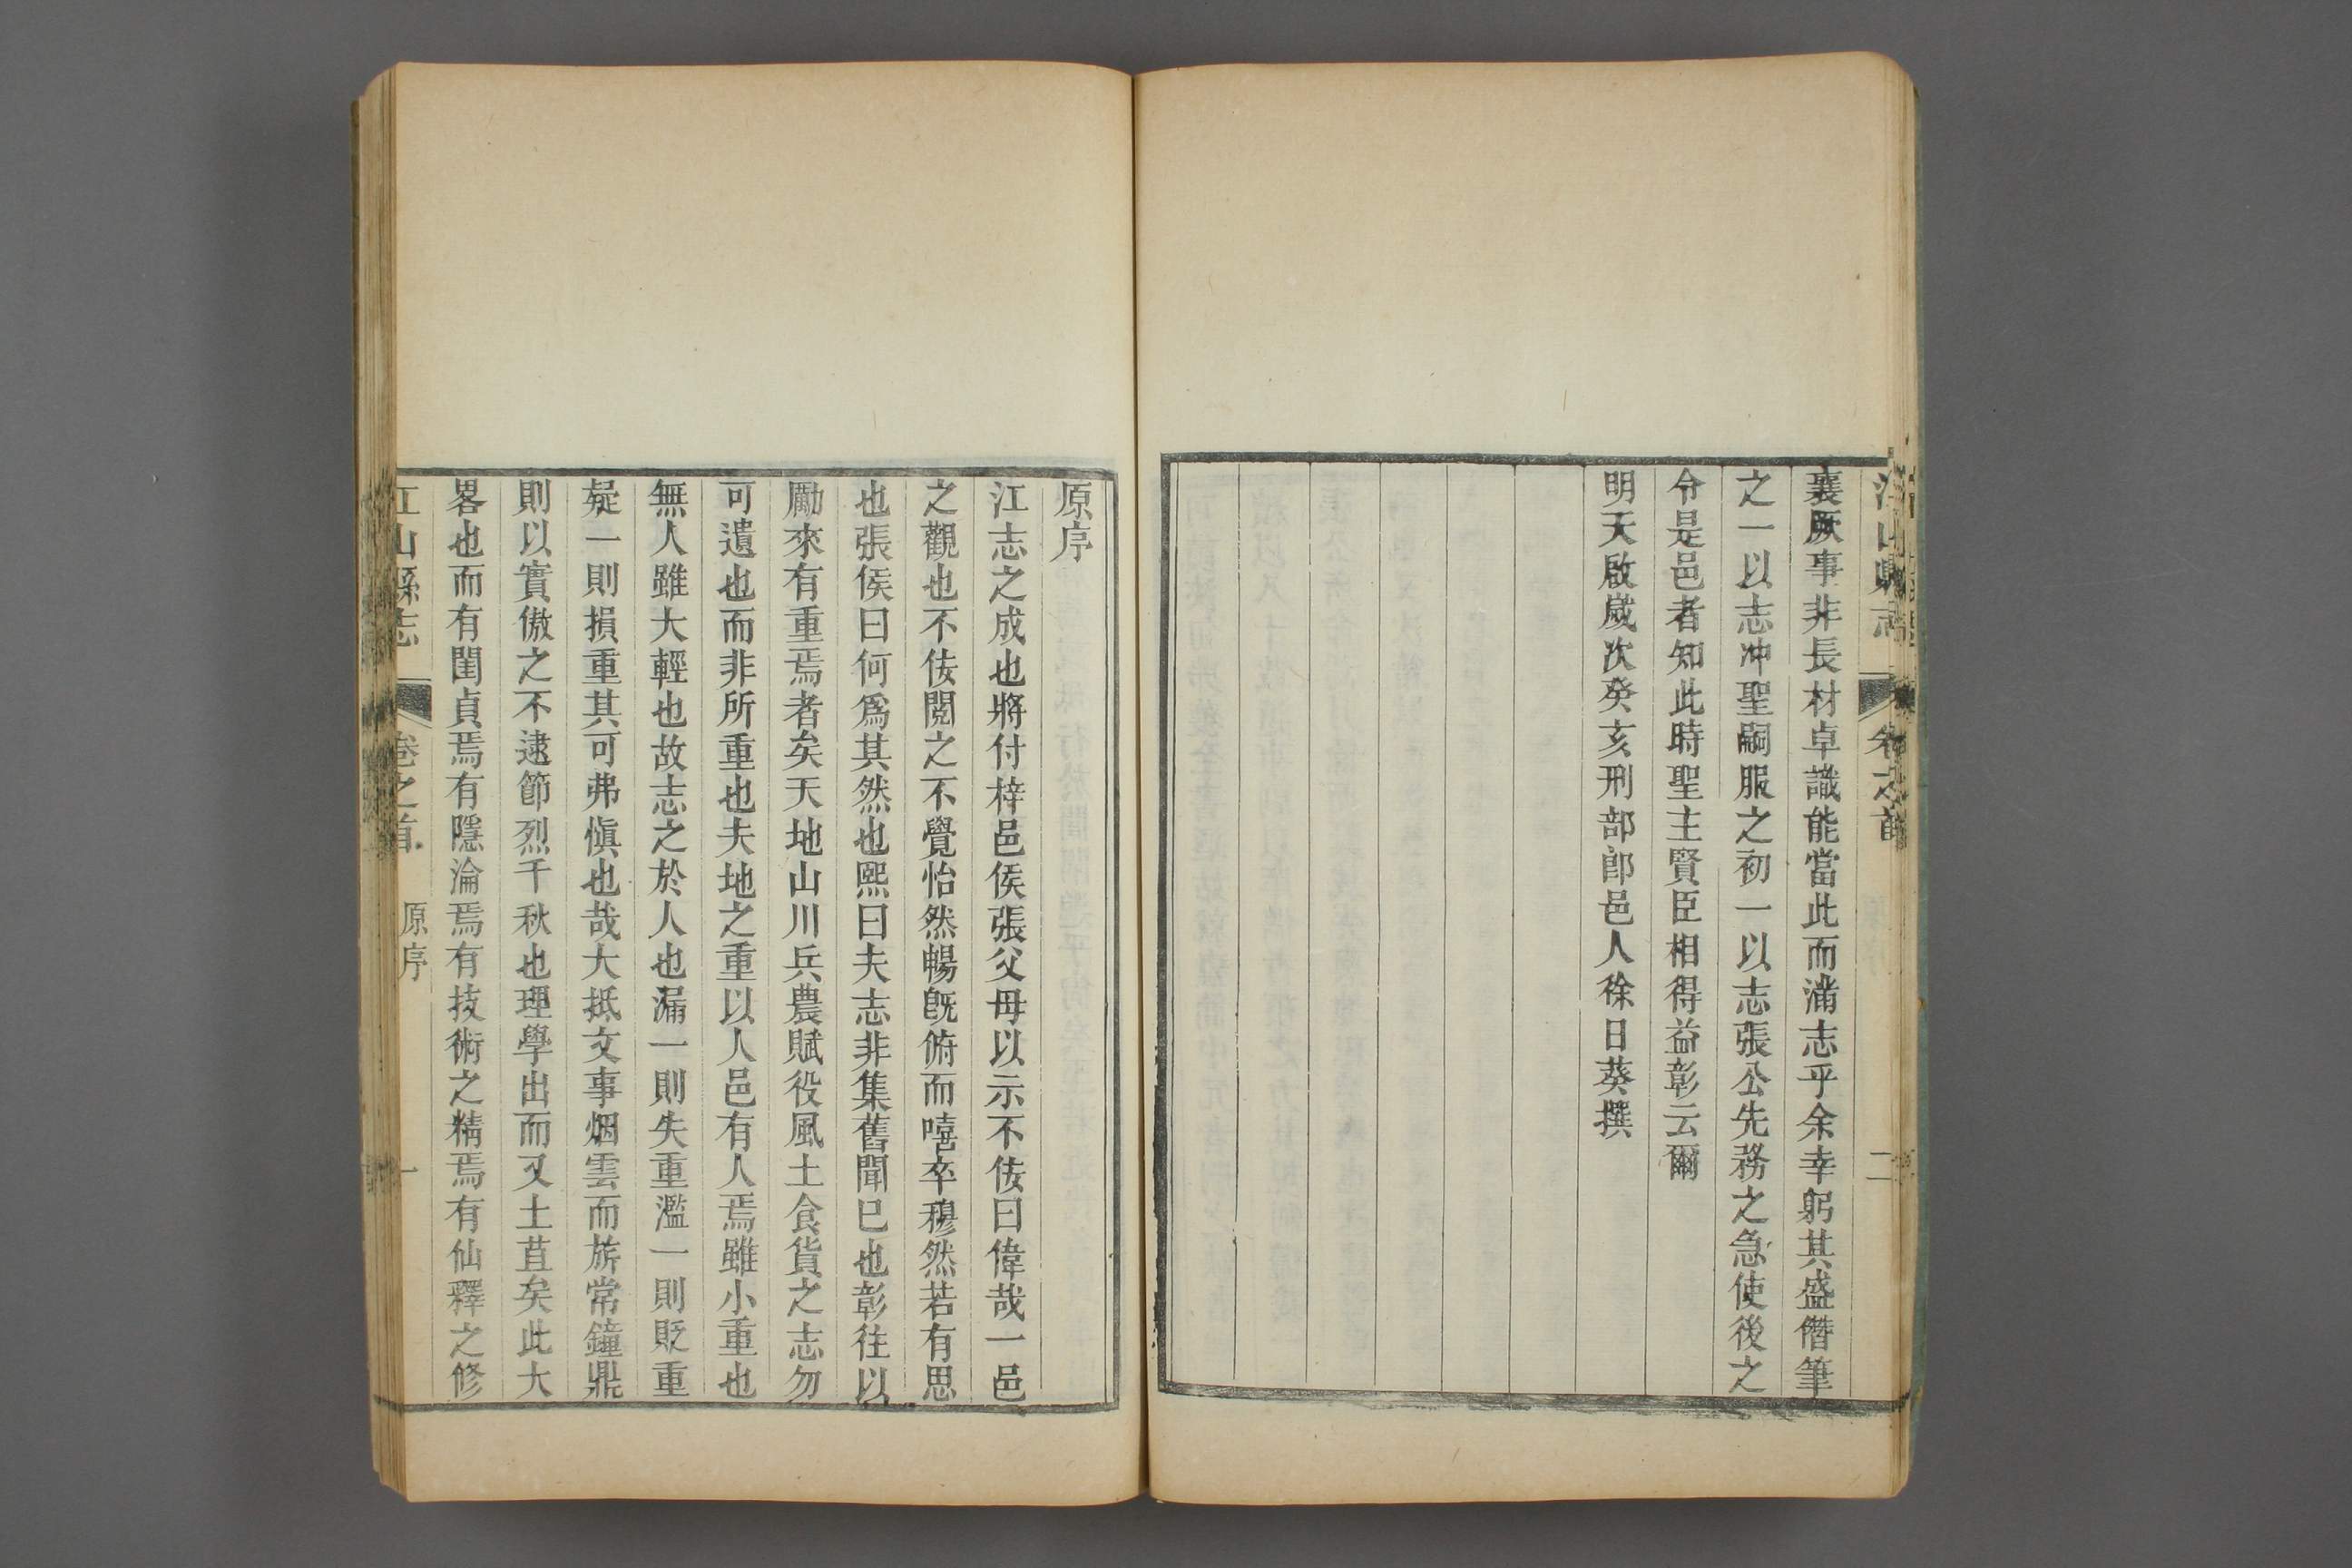 江山縣志 卷之首 二
襄厥事非長材卓識能當此而滿志乎余幸躬其盛僭筆
之一以志冲聖嗣服之初一以志張公先務之急使後之
令是邑者知此時聖主賢臣相得益彰云爾
明天啟歲次癸亥刑部郎邑人徐日葵撰
原序
江志之成也將付梓邑侯張父母以示不佞曰偉哉一邑
之觀也不佞閱之不覺怡然暢旣俯而嘻卒穆然若有思
也張侯曰何爲其然也熙曰夫志非集舊聞已也彰往以
勵來有重焉者矣天地山川兵農賦役風土食貨之志勿
可遺也而非所重也夫地之重以人邑有人焉雖小重也
無人雖大輕也故志之於人也漏一則失重濫一則貶重
疑一則損重其可弗愼也哉大抵文事烟雲而旂常鐘鼎
則以實傲之不逮節烈千秋也理學出而又土苴矣此大
畧也而有閨貞焉有隱淪焉有技術之精焉有仙釋之修
江山縣志 卷之首 原序 一